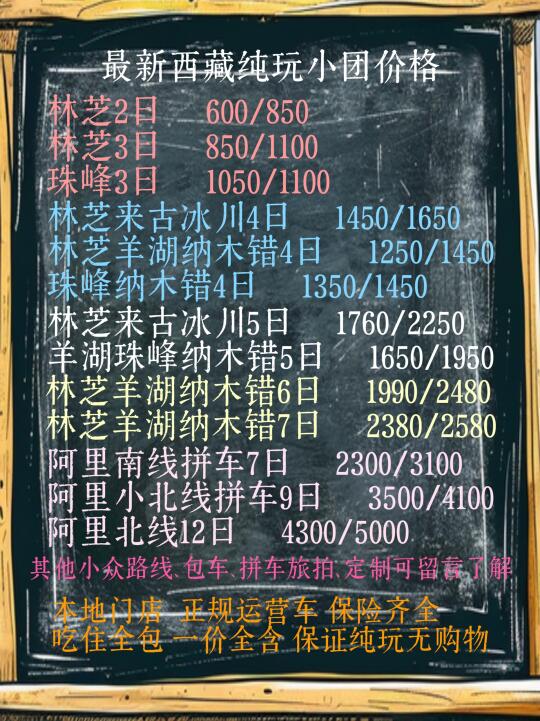 最新西藏纯玩小团价格
林芝2日 600/850
林芝3日 850/1100
珠峰3日 1050/1100
林芝来古冰川4日 1450/1650
林芝羊湖纳木错4日 1250/1450
珠峰纳木错4日 1350/1450
林芝来古冰川5日 1760/2250
羊湖珠峰纳木错5日 1650/1950
林芝羊湖纳木错6日 1990/2480
林芝羊湖纳木错7日 2380/2580
阿里南线拼车7日 2300/3100
阿里小北线拼车9日 3500/4100
阿里北线12日 4300/5000
其他小众路线.包车.拼车旅拍.定制可留言了解
本地门店 正规运营车 保险齐全
吃住全包 一价全含 保证纯玩无购物